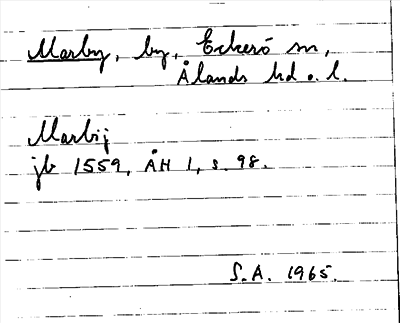 Marby, by, Eckerö sn,
Ålands hd o. l.
Marbij
jb 1559, ÅH 1, s. 98.
S.A. 1965.